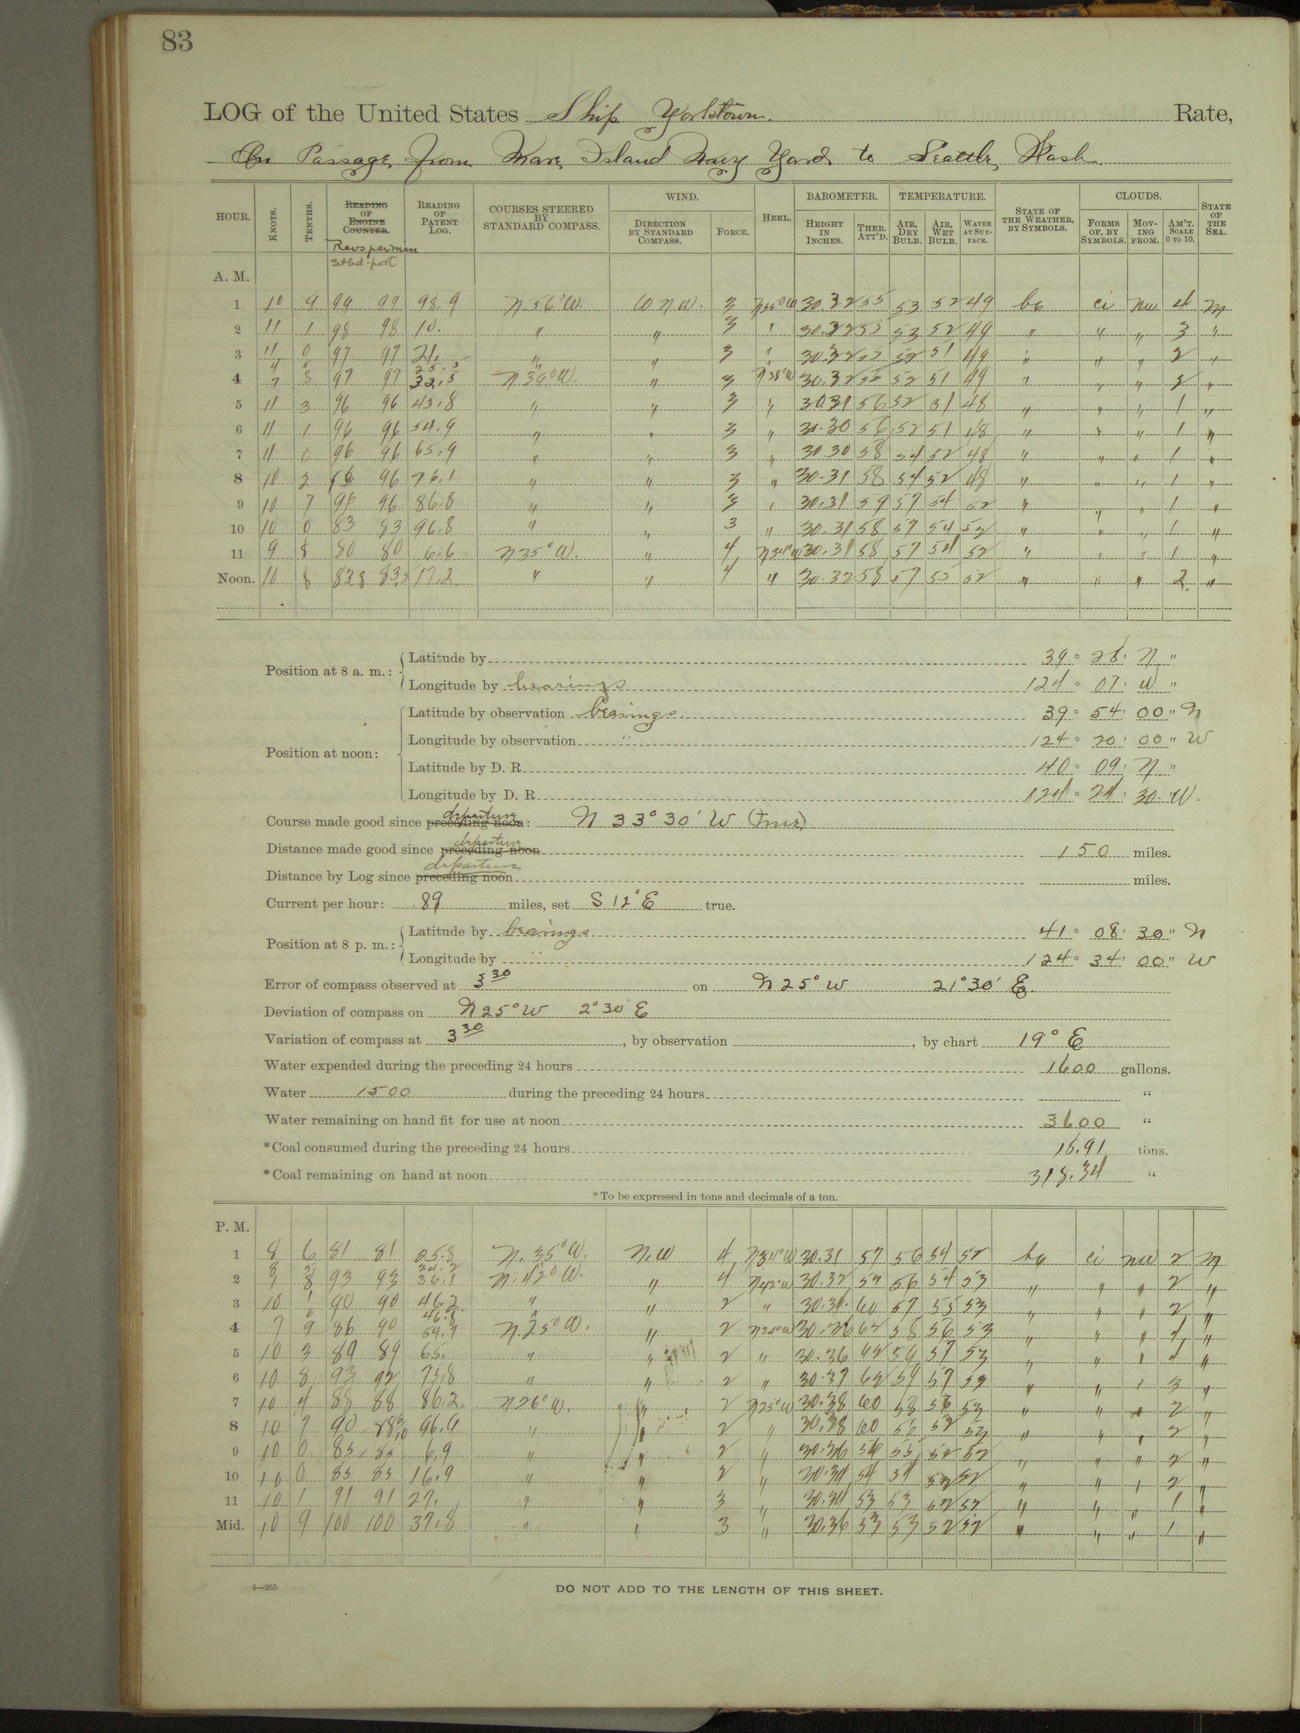 83
LOG of the United States Ship Yorktown. Rate,
On Passage from Mare Island Navy Yard to Seattle, Wash.
HOUR. KNOTS. TENTHS. READING OF ENGINE COUNTER. READING OF PATENT LOG. COURSES STEERED BY STANDARD COMPASS. WIND. DIRECTION BY STANDARD COMPASS. FORCE. HEEL. BAROMETER. HEIGHT IN INCHES. THER. ATT'D. TEMPERATURE. AIR, DRY BULB. AIR, WET BULB. WATER AT SURFACE. STATE OF THE WEATHER, BY SYMBOLS. CLOUDS. FORMS OF, BY SYMBOLS. MOVING FROM. AM'T. SCALE 0 TO 10. STATE OF THE SEA.
Revs per min
Stbd - port
A. M.
1 10 9 99 99 98.9 N 56° W. W N W. 3 30.32 55 53 52 49 bc ci nw 4 M
2 11 1 98 98 10. " " 3 " 30.32 55 53 52 49 " " " 3 "
3 11 0 97 97 21. " " 3 " 30.32 55 52 51 49 " " " 2 "
4 97 97 32.5 " 3 30.32 52 51 49 " " " "
5 11 3 96 96 43.8 " " 3 " 30.31 56 52 51 48 " " " 1 "
6 11 1 96 96 54.9 " " 3 " 30.30 56 52 51 48 " " " 1 "
7 11 0 96 96 65.9 " " 3 " 30.30 58 54 52 48 " " " 1 "
8 10 2 96 76.1 " " 3 " 30.31 58 54 52 48 " " " 1 "
9 10 7 96 86.8 " " 3 " 30.31 59 57 54 52 " " " 1 "
10 10 0 83 83 96.8 " " 3 " 30.31 58 57 54 52 " " " 1 "
11 9 8 80 80 6.6 N 35° W. " 4 30.31 58 57 54 52 " " " 1 "
Noon. 10 8 17.2 " " 4 " 30.32 58 57 55 52 " " " 2 "
Position at 8 a. m.: Latitude by 39° 28' N "
Longitude by bearings 124° 07' W "
Position at noon: Latitude by observation bearings 39° 54' 00" N
Longitude by observation " 124° 20' 00" W
Latitude by D. R. 40° 09' N "
Longitude by D. R. 124° 24' 30" W.
Course made good since preceding noon departure: N 33° 30' W (True)
Distance made good since preceding noon departure 150 miles.
Distance by Log since preceding noon departure miles.
Current per hour: .89 miles, set S 12° E true.
Position at 8 p. m.: Latitude by bearings 41° 08' 30" N
Longitude by " 124° 34' 00" W
Error of compass observed at 3 30 on N 25° W 21° 30' E.
Deviation of compass on N 25° W 2° 30' E
Variation of compass at 3 30, by observation , by chart 19° E
Water expended during the preceding 24 hours 1600 gallons.
Water 1500 during the preceding 24 hours "
Water remaining on hand fit for use at noon 3600 "
*Coal consumed during the preceding 24 hours 15.91 tons.
*Coal remaining on hand at noon 318.34 "
*To be expressed in tons and decimals of a ton.
P. M.
1 8 6 81 81 25.8 N. 35° W. N. W 4 N 34° W 30.31 57 56 54 52 bc ci nw 2 M
2 93 93 36.1 N. 42° W. " 4 N 42° W 30.32 56 54 53 " " " 2 "
3 10 1 90 90 46.2 " " 2 " 60 57 55 53 " " " 2 "
4 7 9 86 90 N 25° W. " 2 58 56 53 " " " "
5 10 3 89 89 65. " " 2 " 30.36 59 57 53 " " " "
6 10 8 93 92 75.8 " " 2 " 30.37 62 59 57 53 " " " 3 "
7 10 4 88 88 86.2 N 26° W. " 2 N 25° W 30.38 60 58 56 53 " " " 2 "
8 10 7 90 96.9 " " 2 " 30.38 60 53 " " " 2 "
9 10 0 85 85 6.9 " " 2 " 30.36 56 55 52 " " " 2 "
10 10 0 85 85 16.9 " " 2 " 54 52 52 " " " 2 "
11 10 1 91 91 27. " " 3 " 53 53 52 52 " " " 1 "
Mid. 10 9 100 100 37.8 " " 3 " 30.36 53 53 52 52 " " " 1 "
4—265
DO NOT ADD TO THE LENGTH OF THIS SHEET.